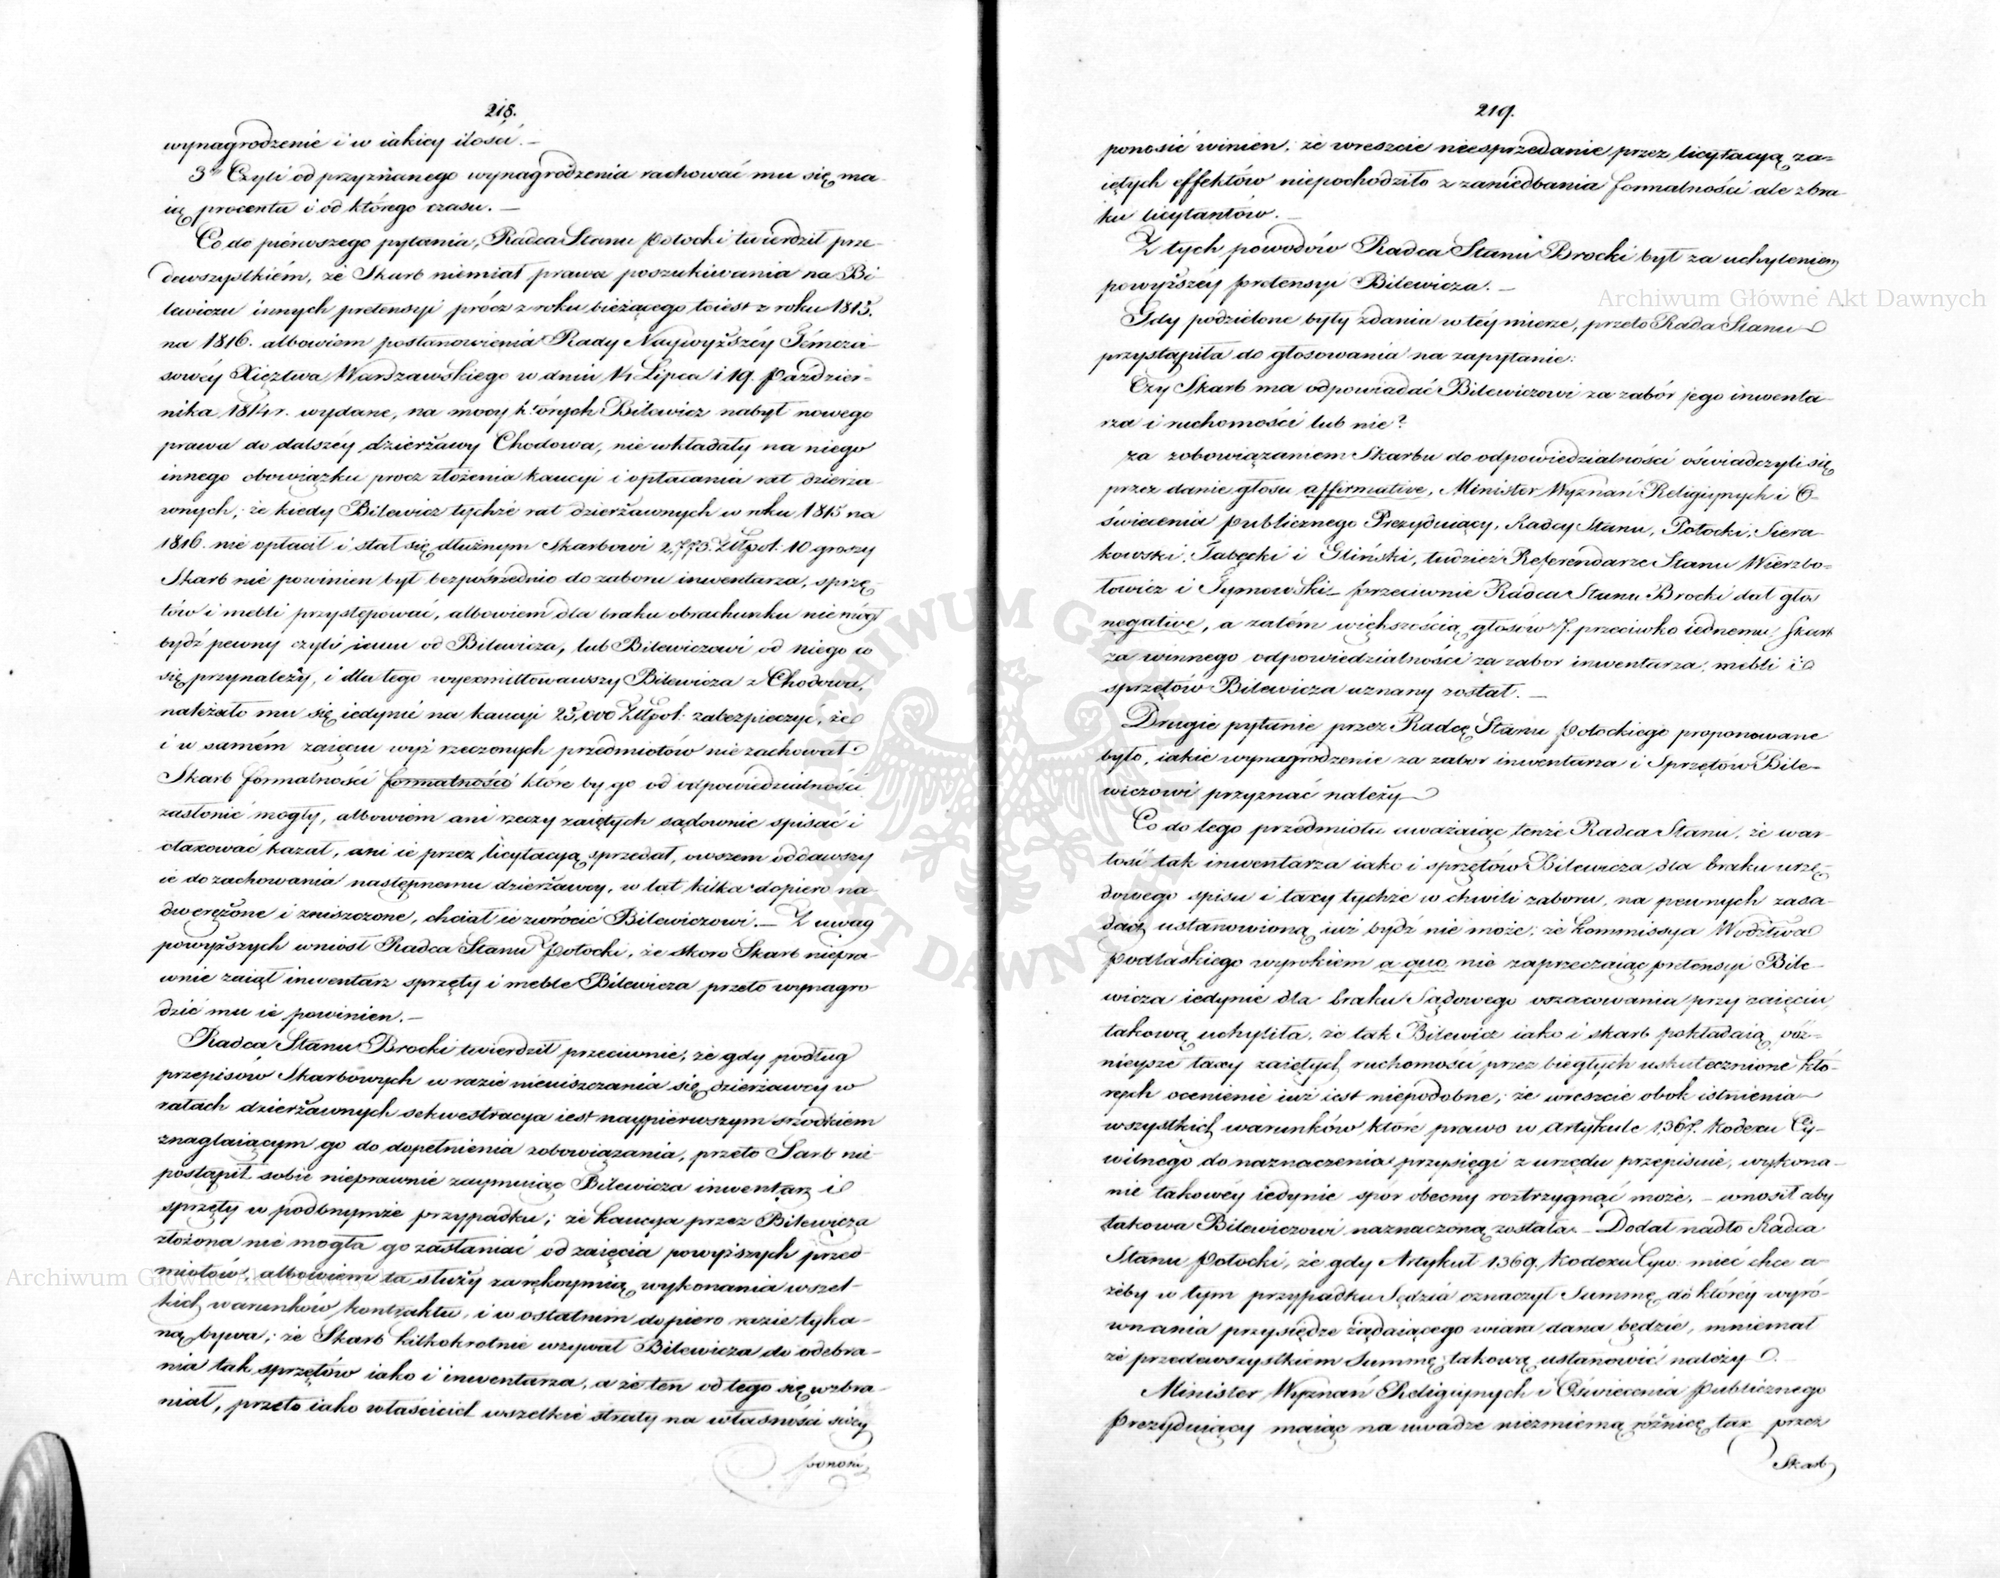 218.
wynagrodzenie i w iakiey ilości. —
3° Czyli od przyznanego wynagrodzenia rachować mu się ma-
ią procenta i od którego czasu. —
Co do pierwszego pytania, Radca Stanu Potocki twierdził prze-
dewszystkiém, że Skarb niemiał prawa poszukiwania na Bi-
lewiczu innych pretensyi prócz z roku bieżącego toiest z roku 1815.
na 1816. albowiem postanowienia Rady Naywyższéy Témcza-
sowéy Xięztwa Warszawskiego w dniu 14 Lipca i 19. Paździer-
nika 1814 r. wydane, na mocy których Bilewicz nabył nowego
prawa do dalszéy dzierżawy Chodowa, nie wkładały na niego
innego obowiązku procz złożenia kaucyi i opłacania rat dzierża-
wnych; że kiedy Bilewicz tychże rat dzierżawnych w roku 1815 na
1816. nie opłacił i stał się dłużnym Skarbowi 2,773. Złłpol: 10 groszy
Skarb nie powinien był bezpośrednio do zaboru inwentarza, sprzę-
tów i mebli przystępować, albowiem dla braku obrachunku nie mógł
bydź pewny czyli iemu od Bilewicza, lub Bilewiczowi od niego co
się przynależy, i dla tego wyexmittowawszy Bilewicza z Chodowa,
należało mu się iedynie na kaucyi 25,000 Złłpol: zabezpieczyć, że
i w samém zaięciu wyż rzeczonych przedmiotów nie zachował
Skarb formalności formalności które by go od odpowiedzialności
zasłonić mogły, albowiem ani rzeczy zaiętych sądownie spisać i
otaxować kazał, ani ie przez licytacyą sprzedał, owszem oddawszy
ie do zachowania następnemu dzierżawcy, w lat kilka dopiero na-
dwerężone i zniszczone, chciał ie zwrócić Bilewiczowi. — Z uwag
powyższych wniósł Radca Stanu Potocki, że skoro Skarb niepra-
wnie zaiął inwentarz sprzęty i meble Bilewicza przeto wynagro-
dzić mu ie powinien. —
Radca Stanu Brocki twierdził przeciwnie, że gdy podług
przepisów Skarbowych w razie nieuiszczania się dzierżawcy w
ratach dzierżawnych sekwestracya iest naypierwszym srzodkiem
znaglaiącym go do dopełnienia zobowiązania, przeto Sarb nie
postąpił sobie nieprawnie zaymuiąc Bilewicza inwentarz i
sprzęty w podbnymże przypadku; że kaucya przez Bilewicza
złożona nie mogła go zasłaniać od zaięcia powyższych przed-
miotów, albowiem ta służy za rękoymią wykonania wszel-
kich warunków kontraktu, i w ostatnim dopiero razie tyka-
ną bywa; że Skarb kilkokrotnie wzywał Bilewicza do odebra-
nia tak sprzętów iako i inwentarza, a że ten od tego się wzbra-
niał, przeto iako właściciel wszelkie straty na własności swéy
ponosić
219.
ponosić winien; że wreszcie niesprzedanie przez licytacyą za-
iętych effektów niepochodziło z zaniedbania formalności ale z bra-
ku licytantów. —
Z tych powodów Radca Stanu Brocki był za uchyleniem
powyższéy pretensyi Bilewicza. —
Gdy podzielone były zdania w téy mierze, przeto Rada Stanu
przystąpiła do głosowania na zapytanie:
Czy Skarb ma odpowiadać Bilewiczowi za zabór jego inwenta-
rza i ruchomości lub nie?
za zobowiązaniem Skarbu do odpowiedzialności oświadczyli się
przez danie głosu affirmative, Minister Wyznań Religiynych i O-
świecenia publicznego Prezyduiący, Radcy Stanu, Potocki, Siera-
kowski, Łabęcki i Gliński, tudzież Referendarze Stanu Wierzbo-
łowicz i Tymowski — przeciwnie Radca Stanu Brocki dał głos
negative, a zatém większością głosów 7. przeciwko iednemu, Skarb
za winnego odpowiedzialności za zabor inwentarza, mebli i
sprzętów Bilewicza uznany został. —
Drugie pytanie przez Radcę Stanu Potockiego proponowane
było, iakie wynagrodzenie za zabor inwentarza i Sprzętów Bile-
wiczowi przyznać należy
Co do tego przedmiotu uważaiąc tenże Radca Stanu, że war-
tość tak inwentarza iako i sprzętów Bilewicza, dla braku urzę-
dowego spisu i taxy tychże w chwili zaboru, na pewnych zasa-
dach ustanowioną iuż bydź nie może; że Kommissya Wództwa
Podlaskiego wyrokiem a quo nie zaprzeczaiąc pretensyi Bile-
wicza iedynie dla braku Sądowego oszacowania przy zaięciu,
takową uchyliła, że tak Bilewicz iako i skarb pokładaią póź-
nieysze taxy zaiętych ruchomości przez biegłych uskutecznione któ-
rych ocenienie iuż iest niepodobne; że wreszcie obok istnienia
wszystkich warunków które prawo w artykule 1367. Kodexu Cy-
wilnego do naznaczenia przysięgi z urzędu przepisuie, wykona-
nie takowéy iedynie spor obecny roztrzygnąć może, — wnosił aby
takowa Bilewiczowi naznaczoną została. — Dodał nadto Radca
Stanu Potocki, że gdy Artykuł 1369. Kodexu Cyw: mieć chce a-
żeby w tym przypadku Sędzia oznaczył Summę, do któréy wyró-
wnania przysiędze żądaiącego wiara dana będzie, mniemał
że przedewszystkiém Summę takową ustanowić należy.
Minister Wyznań Religiynych i Oświecenia Publicznego
Prezyduiący maiąc na uwadze niezmierną różnicę tax przez
Skarb
Archiwum Główne Akt Dawnych
Archiwum Główne Akt Dawnych
ARCHIWUM GŁÓWNE AKT DAWNYCH